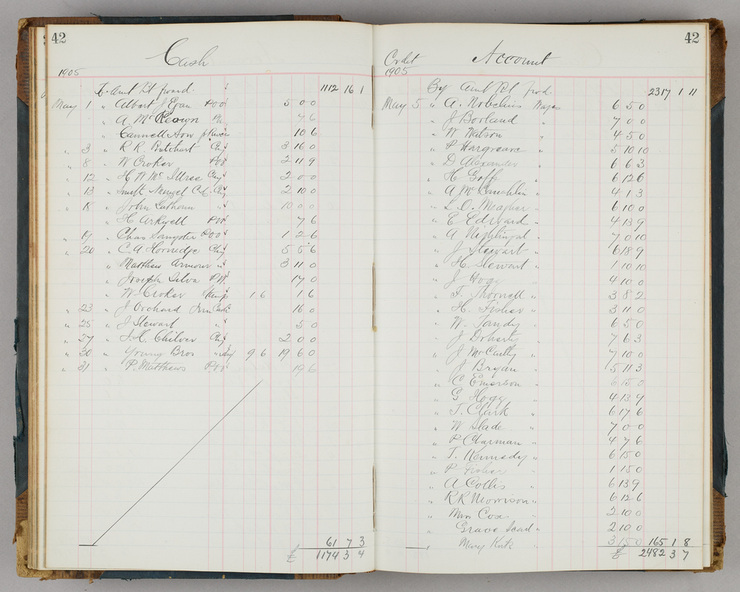 42
Cash
1905
To Amt Bt forwd 1112 16 1
May 1 " Albert J Egan P00 5 0 0
" A. McKeoyn 7 6
" Cannell How 10 6
" 3 " R R Butchart Chq 3 16 0
" 8 " W Croker P00 2 11 9
" 12 " H. W. Mc Chq 2 0 0
" 13 " Co. Chq 2 10 0
" 18 " John Calhoun 10 0 0
" H. Arkwell P00 7 6
" 19 " Chas Sangster P00 1 2 6
" 20 " C. A. Chq 5 5 6
" Matthew Armour " 3 11 0
" Joseph Silva 17 0
" W. Croker 1 6 1 6
" 23 " J Orchard 16 0
" 25 " J Stewart " 5 0
" 27 " H. Chilver Chq 2 0 0
" 30 " Young Bros 9 6 19 6 0
" 31 " P. Matthews P00 19 6
61 7 3
£ 1174 3 4
42
Credit Account
1905
By Amt Bt forwd 2317 1 11
May 5 " A. Nobelius Wages 6 5 0
" J Borland " 7 0 0
" W Watson " 4 5 0
" P Hargreave " 5 10 10
" D Alexander " 6 6 3
" H Goffe " 6 12 6
" A McLauchlin " 4 1 3
" L. D. Meagher " 6 10 0
" E Edward " 4 13 9
" A Nightingal " 7 0 10
" J Stewart " 6 18 9
" H. Stewart " 1 10 10
" J Hogg " 4 10 0
" T Thornell " 3 8 2
" H. " 3 11 0
" W. Tandy " 6 5 0
" J Doherty " 7 6 3
" J McCully " 7 10 0
" J Bryan " 5 11 3
" C Emerson " 6 15 0
" G Hogg " 4 13 9
" T. Clark " 6 17 6
" W Slade " 7 0 0
" P Charman " 4 7 6
" T. Kennedy " 6 15 0
" P " 1 15 0
" A Collis " 6 13 9
" R R Morrison " 6 12 6
" Wm Cox " 2 10 0
" Grave " 2 10 0
" Mary Kate 3 15 0 165 1 8
£ 2482 3 7